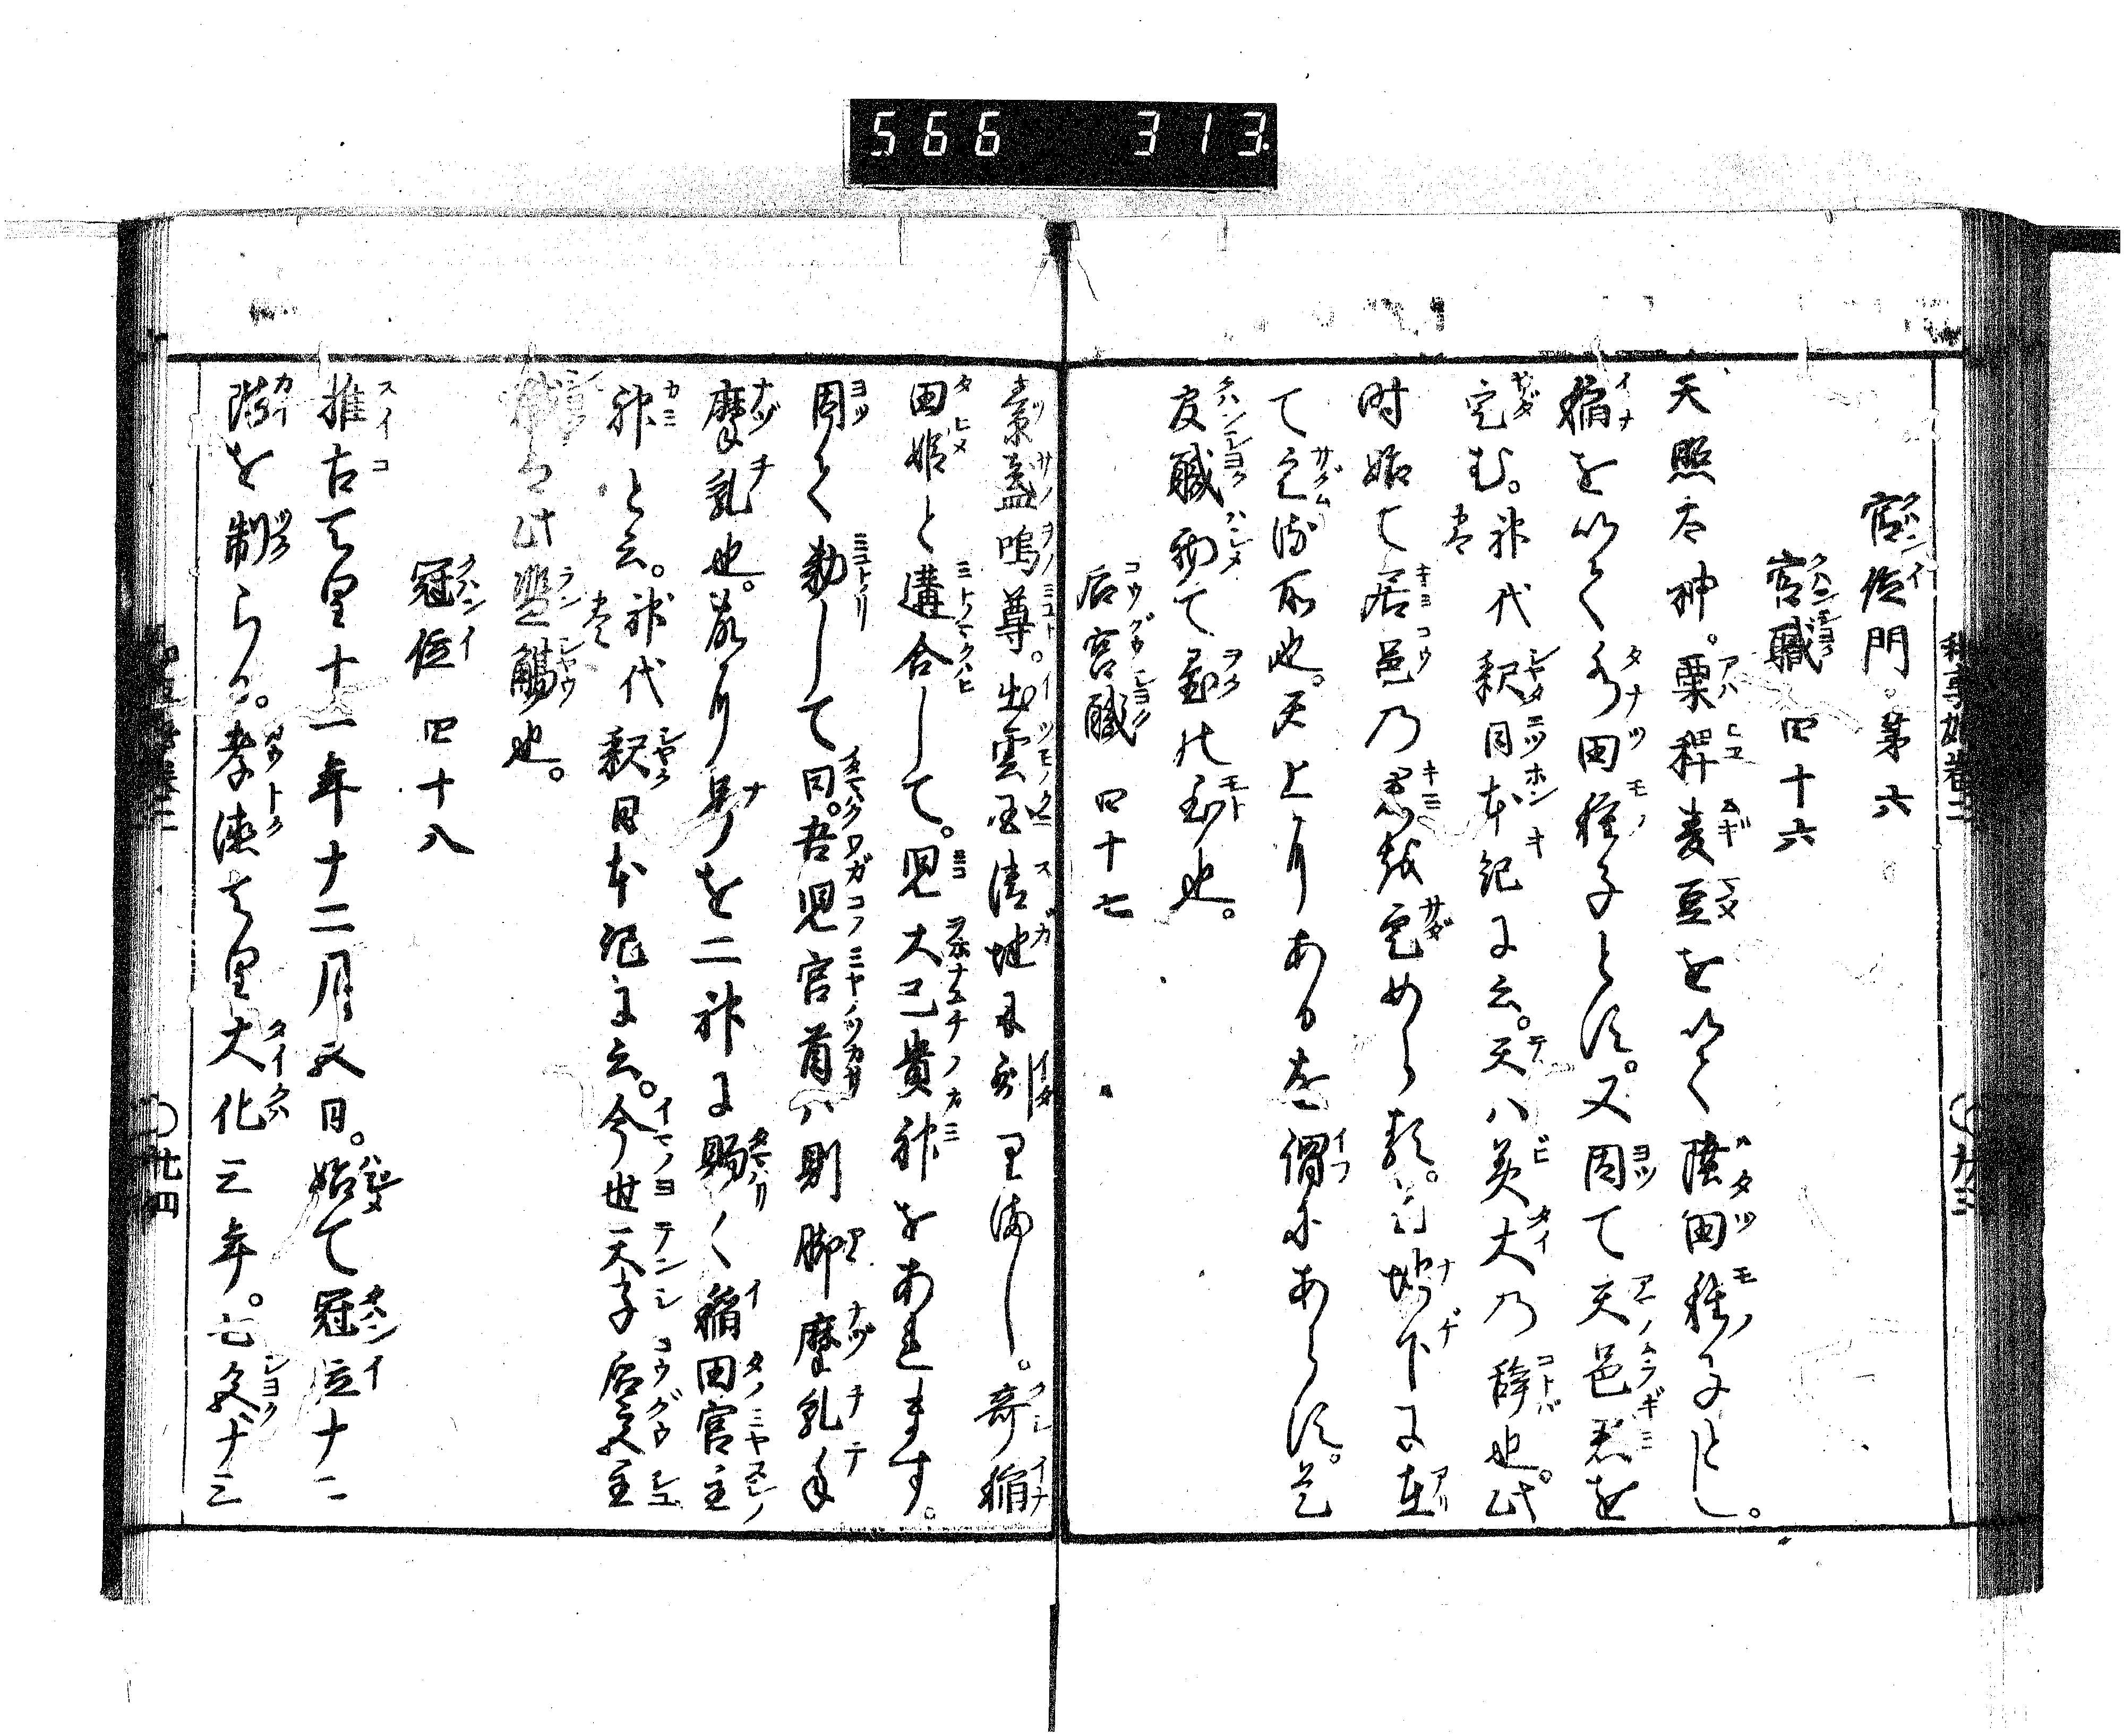 566 313
官位門。第六
官職 四十六
天照太神。粟稗麦豆を以て陸田種子とし。
稲を以て水田種子とす。又因て天邑君を
定む。神代巻 釈日本紀に云。天ハ美大乃辞也。此
時始て居邑乃君越定めらる。
て定る所也。天上りある を謂にあらす。是
官職初て の也。
后宮職 四十七
素盞嗚尊。出雲国清地に到里満し。奇稲
田姫と遘合して。児大己貴神をあれます。
因て勅して曰。吾児宮首ハ則脚摩乳手
摩乳也。故り号を二神に賜く稲田宮主
神と云。神代巻 釈日本紀に云。今世天子后宮主
此濫觴也。
冠位 四十八
推古天皇十一年十二月五日。始て冠位十二
階を制らる。孝徳天皇大化三年。七色十三